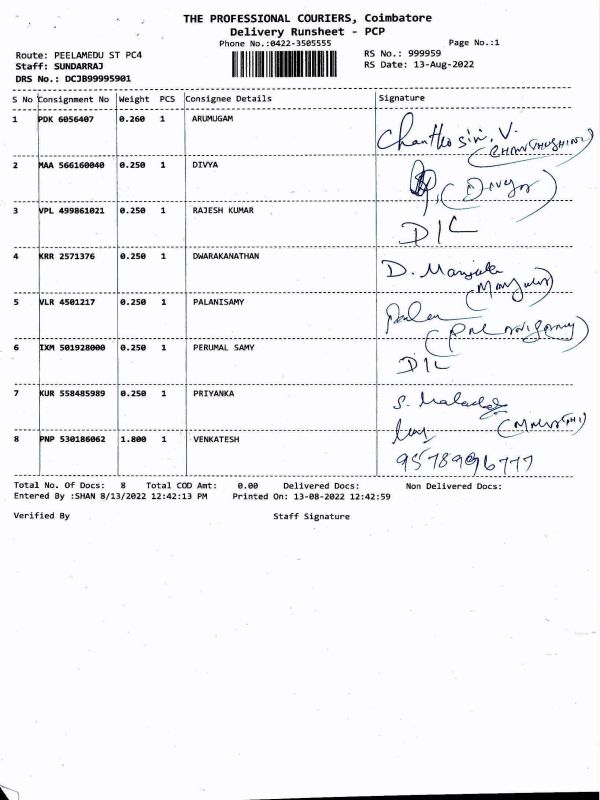 THE PROFESSIONAL COURIERS, Coimbatore
Delivery Runsheet - PCP
Phone No.:0422-3505555 Page No.:1
Route: PEELAMEDU ST PC4 RS No.: 999959
Staff: SUNDARRAJ RS Date: 13-Aug-2022
DRS No.: DCJB99995901
S No Consignment No Weight PCS Consignee Details Signature
1 PDK 6056407 0.260 1 ARUMUGAM
2 MAA 566160040 0.250 1 DIVYA
3 VPL 499861021 0.250 1 RAJESH KUMAR
D/L
4 KRR 2571376 0.250 1 DWARAKANATHAN
D. Manjula
5 VLR 4501217 0.250 1 PALANISAMY
6 IXM 501928000 0.250 1 PERUMAL SAMY
D/L
7 KUR 558485989 0.250 1 PRIYANKA
8 PNP 530186062 1.800 1 VENKATESH
Total No. Of Docs: 8 Total COD Amt: 0.00 Delivered Docs: Non Delivered Docs:
Entered By :SHAN 8/13/2022 12:42:13 PM Printed On: 13-08-2022 12:42:59
Verified By Staff Signature